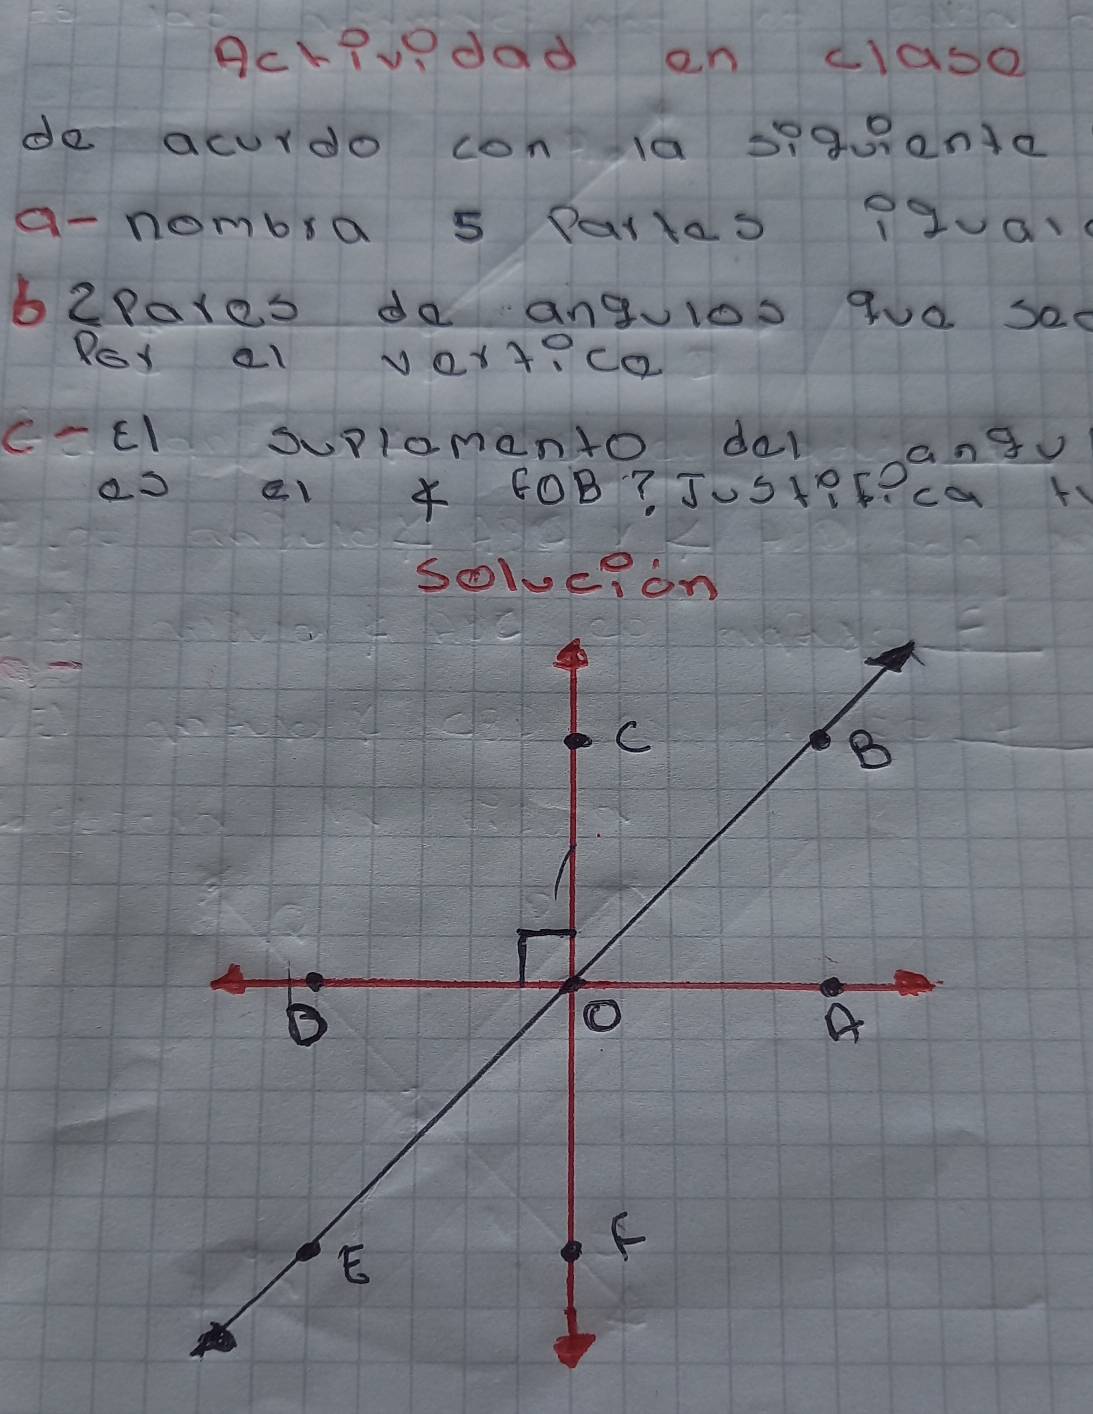 Actividad en clase
de acurdo con la siguiente
a- nombra 5 Partes igual
b 2 Pares de angulos que se
Por el vertice
c- El suplemento del angu
es el ∢ FOB? Justifica t
Solución
C
B
D
O
A
E
F